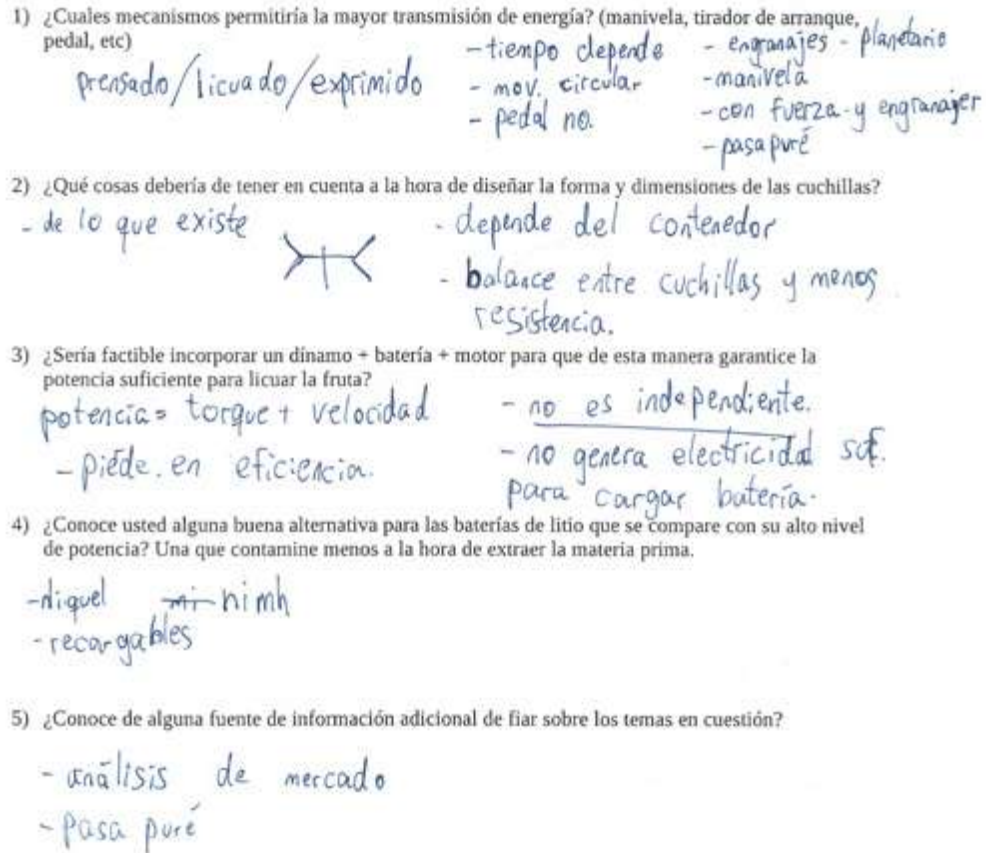 1) ¿Cuales mecanismos permitiría la mayor transmisión de energía? (manivela, tirador de arranque,
pedal, etc)
prensado/licuado/exprimido
- tiempo depende
- mov. circular
- pedal no.
- engranajes - planetario
- manivela
- con fuerza y engranajer
- pasapuré
2) ¿Qué cosas debería de tener en cuenta a la hora de diseñar la forma y dimensiones de las cuchillas?
- de lo que existe
- depende del contenedor
- balance entre cuchillas y menos
resistencia.
3) ¿Sería factible incorporar un dínamo + batería + motor para que de esta manera garantice la
potencia suficiente para licuar la fruta?
potencia = torque + velocidad
- piede. en eficiencia.
- no es independiente.
- no genera electricidad
para cargar batería.
4) ¿Conoce usted alguna buena alternativa para las baterías de litio que se compare con su alto nivel
de potencia? Una que contamine menos a la hora de extraer la materia prima.
- niquel nimh
- recargables
5) ¿Conoce de alguna fuente de información adicional de fiar sobre los temas en cuestión?
- análisis de mercado
- pasa puré